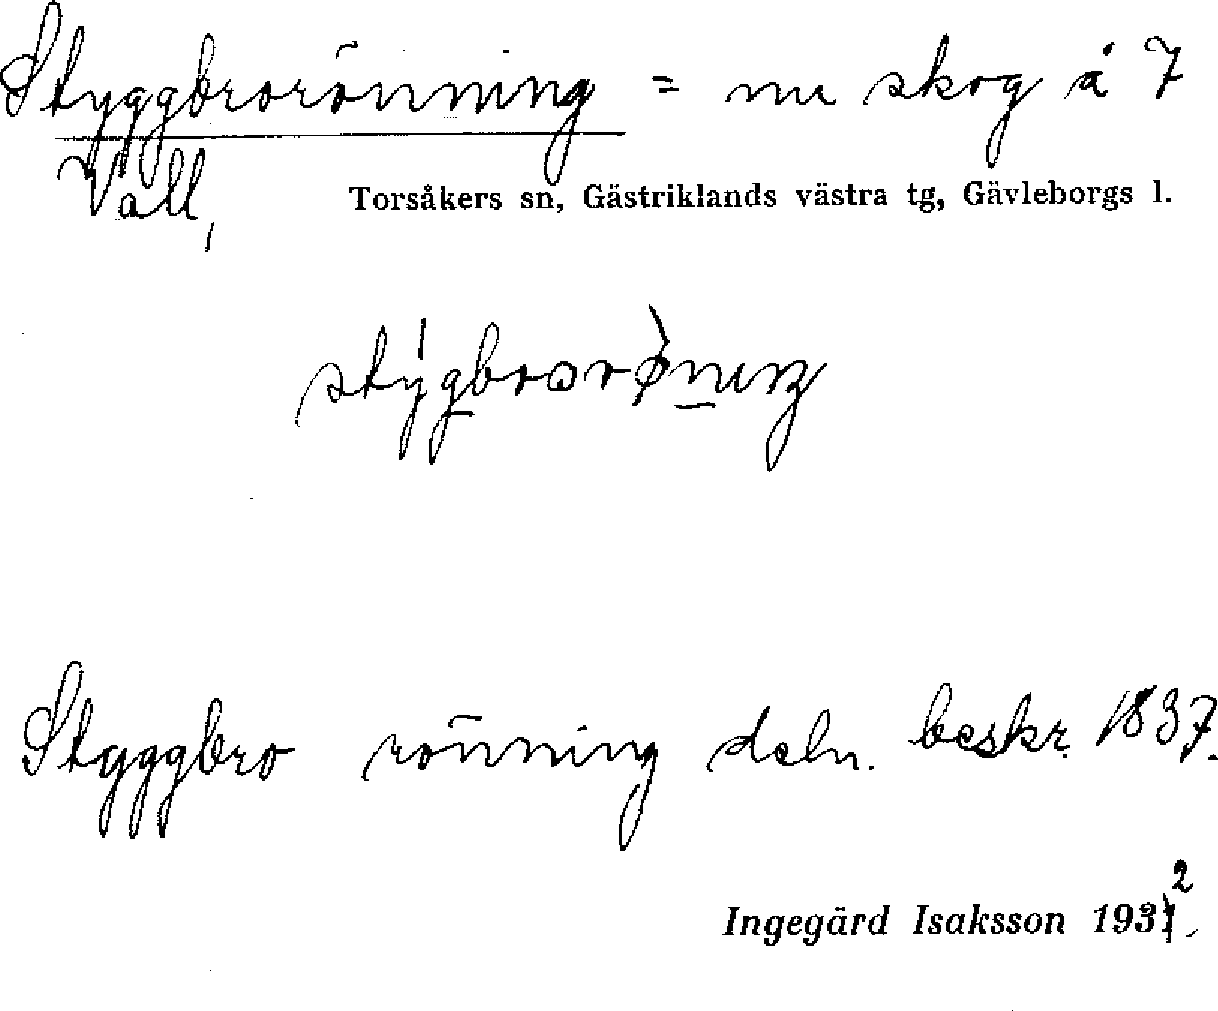 Styggbrorönning = nu skog å 7
Vall,
Torsåkers sn, Gästriklands västra tg, Gävleborgs l.
Styggbro rönning deln. beskr. 1837.
2
Ingegärd Isaksson 1931